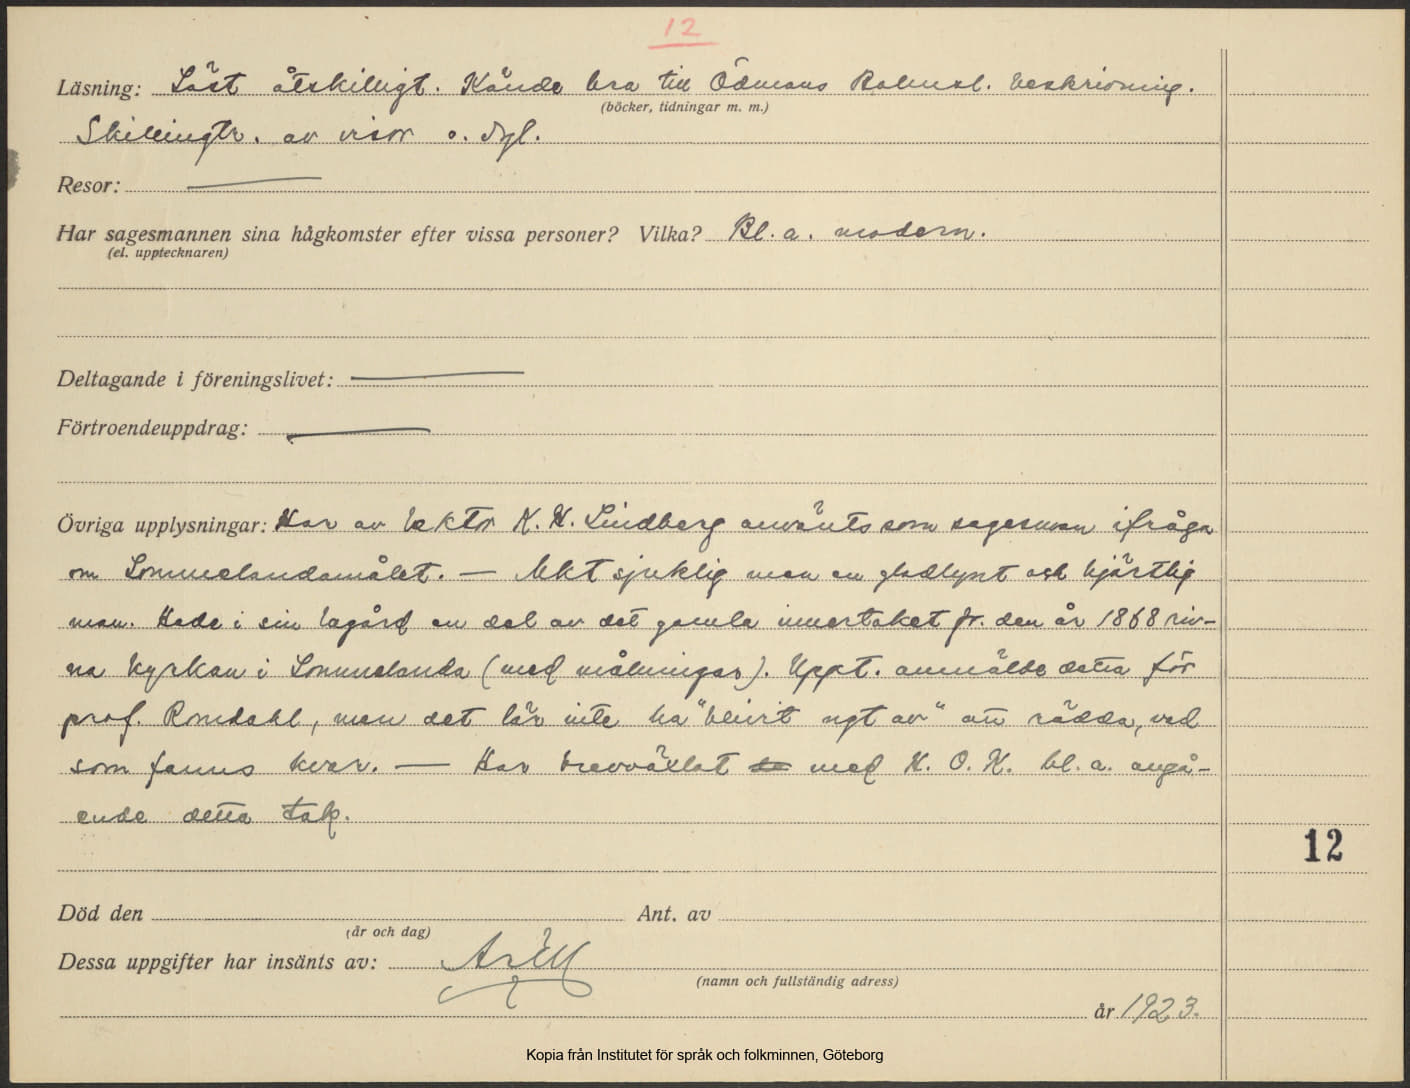 12
Läsning: Läst åtskilligt. Kände bra till Ödmans Bohusl. beskrivning.
(böcker, tidningar m. m.)
Skillingtr. av visor o. dyl.
Resor: —
Har sagesmannen sina hågkomster efter vissa personer? Vilka? Bl. a. modern.
(el. upptecknaren)
Deltagande i föreningslivet: —
Förtroendeuppdrag: —
Övriga upplysningar: Har av lektor K. H. Lindberg använts som sagesman ifråga
om Lommelandamålet. — Mkt sjuklig men en gladlynt och hjärtlig
man. Hade i sin lagård en del av det gamla innertaket fr. den år 1868 riv-
na kyrkan i Lommelanda (med målningar). Uppt. anmälde detta för
prof. Romdahl, men det lär inte ha "blivit ngt av" att rädda, vad
som fanns kvar. — Har brevväxlat med K. O. K. bl. a. angå-
ende detta tak.
12
Död den Ant. av
(år och dag)
Dessa uppgifter har insänts av:
(namn och fullständig adress)
år 1923.
Kopia från Institutet för språk och folkminnen, Göteborg